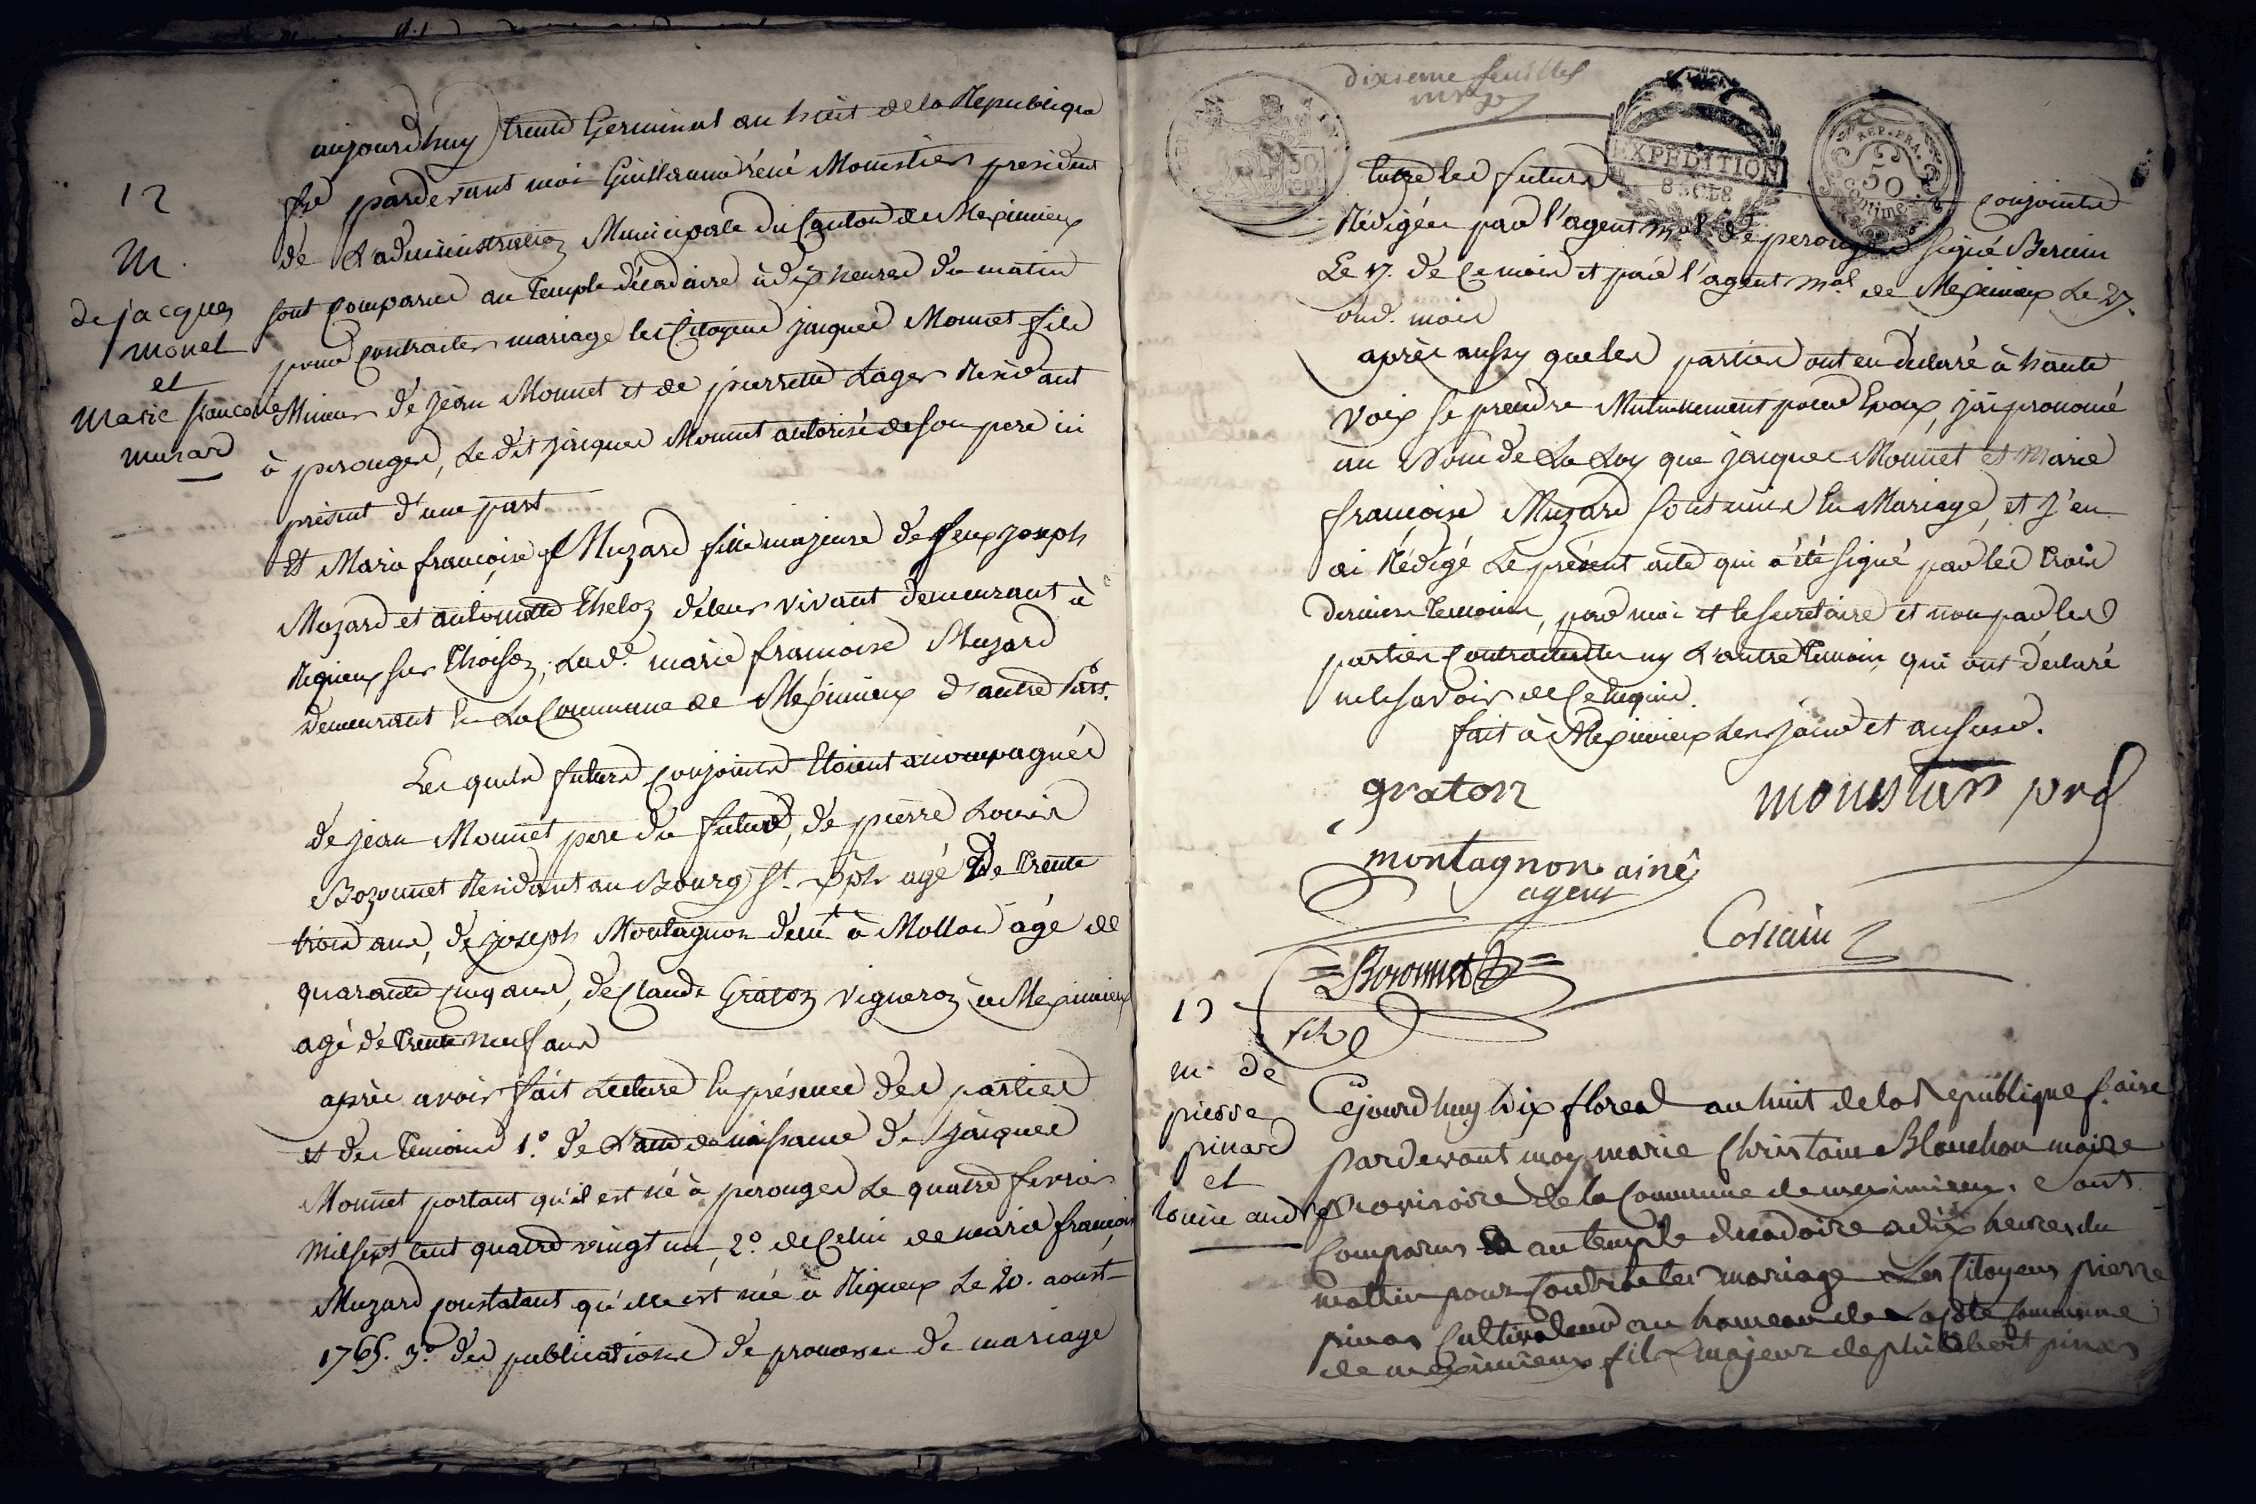 12
M.
de jacques
monet
et
Marie francoise
muzard
aujourd'huy trente Germinal an huit de la Republique
fse pardevant moi Guillaume réné Monistier president
de L'administration Municipale du Canton de Meximieux
sont Comparus au Temple décadaire à dix heures du matin
pour Contracter mariage les Citoyens jacques Monnet fils
Mineur de Jean Monnet et de pierrette Lager Residant
à perouges, Le dit Jacques Monnet autorisé de son pere ici
présent d'une part
Et Marie francoise Muzard fille majeure de feux Joseph
Muzard et antoinette Theloz de leur vivant demeurant à
Rignieux sur Thoisez, Lad.e marie francoise Muzard
demeurant en La Commune de Meximieux d'autre part.
Les quels futurs conjoints Etoient accompagnés
de jean Monnet pere du futur, de pierre Louis
Bozonnet Residant au Bourg St. agé de trente
trois ans, de Joseph Montagnon demt à Mollon agé de
quarante cinq ans, de Claude Graton vigneron à Meximieux
agé de trente neuf ans
après avoir fait Lecture En présence des parties
et des Temoins 1.o de L'acte de naissance de Jacques
Monnet portant qu'il est né à perouges Le quatre fevrier
mil sept cent quatre vingt un, 2.o de Celui de marie francoise
Muzard constatant qu'elle est née à Rigneux Le 20. aoust
1765. 3.o des publications de promesse de mariage
dixieme feuillet
EXPEDITION
REP. FRA.
50
centimes
Entre les futurs conjoints
Rédigées par l'agent mal de perouges signé Bernin
Le 17. de Ce mois et par l'agent mal de Meximieux Le 27.
aud. mois
après aussy que les parties ont eu déclaré à haute
voix se prendre Mutuellement pour Epoux, j'ai prononcé
au Nom de La Loy que jacques Monnet et Marie
francoise Muzard sont unis En Mariage, et J'en
ai Rédigé Le présent acte qui a été signé par les trois
derniers Temoins, par moi et le secretaire et non par les
parties Contractantes ny L'autre Temoin qui ont déclaré
ne le savoir de Ce Enquis.
fait à Meximieux Les jour et an susd.
graton
monistier prd
montagnon ainé
agent
Bozonnet
13
m. de
pierre
pinard
et
louise andre
Cejourd'huy dix floreal an huit de la Republique f.aise
pardevant moy marie Christaine Blanchon maire
provisoire de la Commune de meximieux, Sont
Comparus au temple decadaire a dix heures du
mattin pour Contracter mariage Les Citoyens pierre
pinar Cultivateur au hameau de La Cote Commune
de meximieux fils majeur de philibert pinar